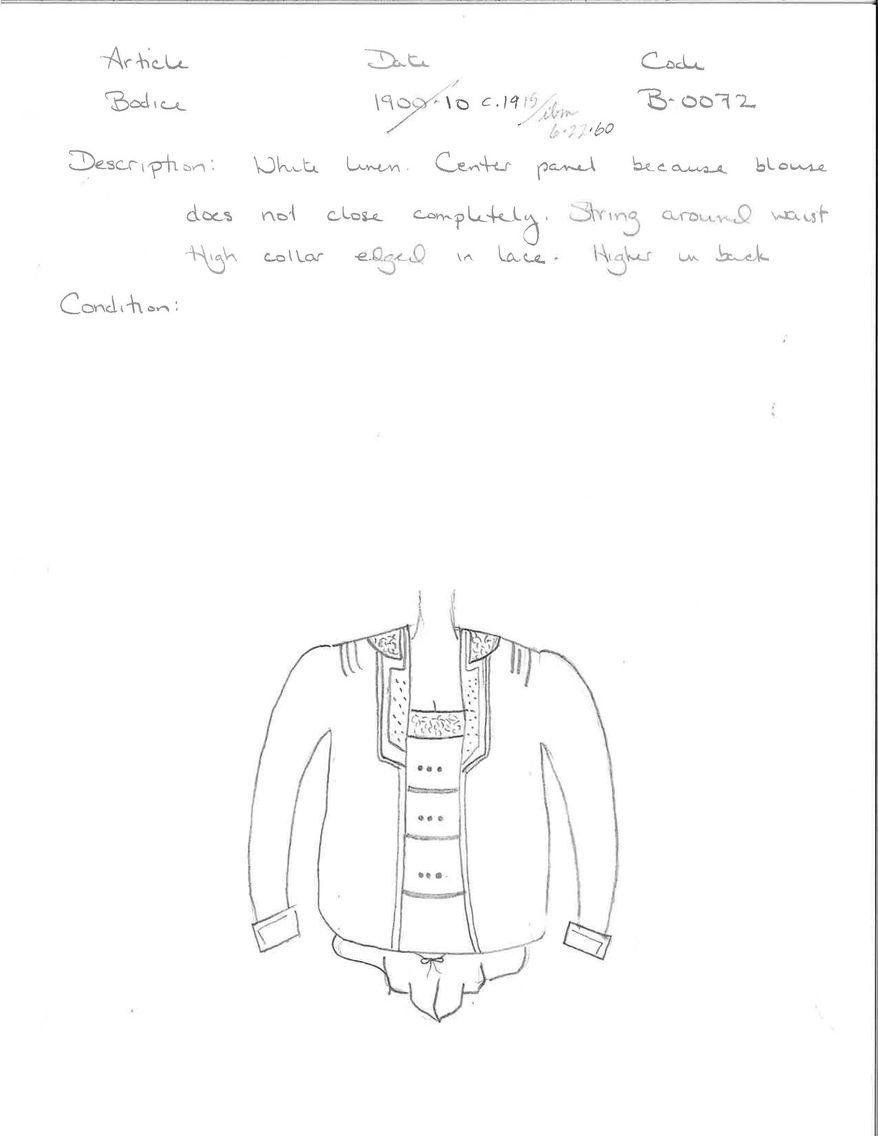 Article Date Code
Bodice 1900-10 c.1915/ibm B-0072
6.22.60
Description: White linen. Center panel because blouse
does not close completely. String around waist
High collar edged in lace. Higher in back
Condition: